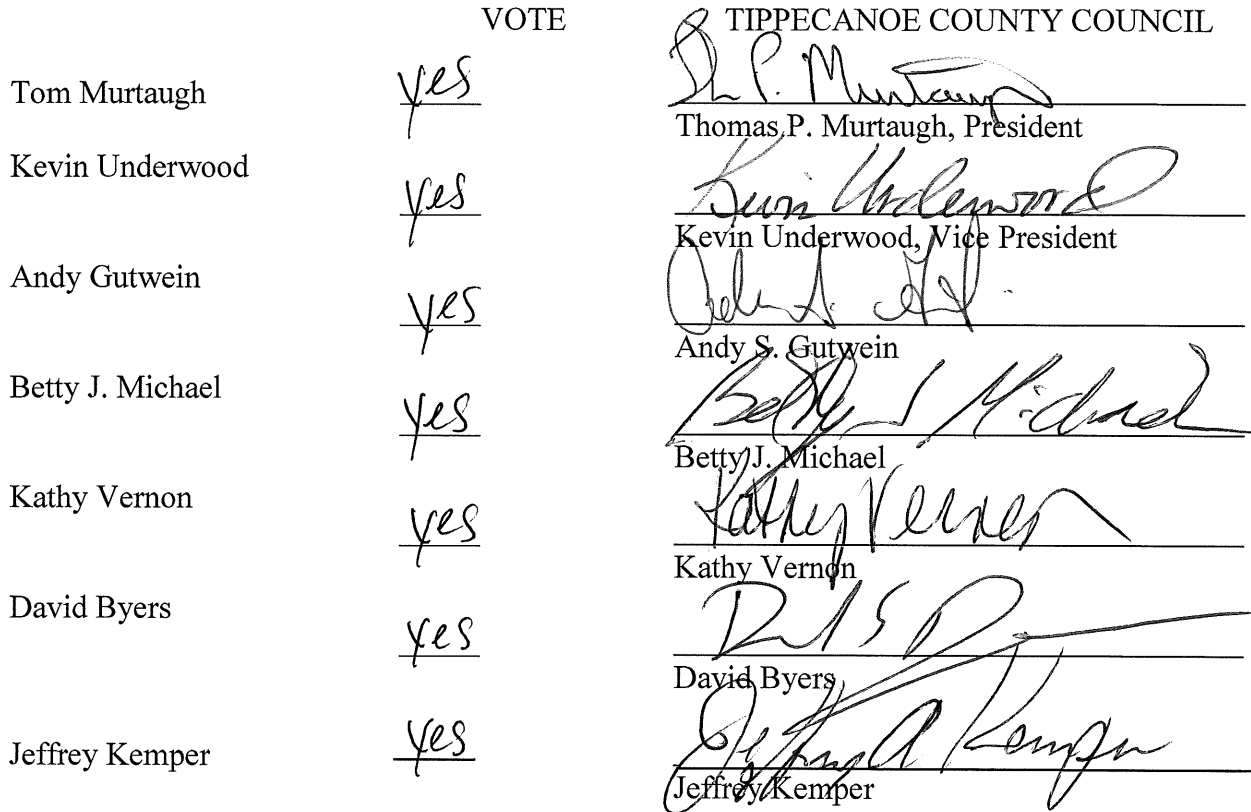 VOTE TIPPECANOE COUNTY COUNCIL
Tom Murtaugh yes P. Murtaugh
Thomas P. Murtaugh, President
Kevin Underwood yes Kevin Underwood
Kevin Underwood, Vice President
Andy Gutwein yes
Andy S. Gutwein
Betty J. Michael yes Betty J Michael
Betty J. Michael
Kathy Vernon yes Kathy Vernon
Kathy Vernon
David Byers yes
David Byers
Jeffrey Kemper yes Jeffrey A Kemper
Jeffrey Kemper